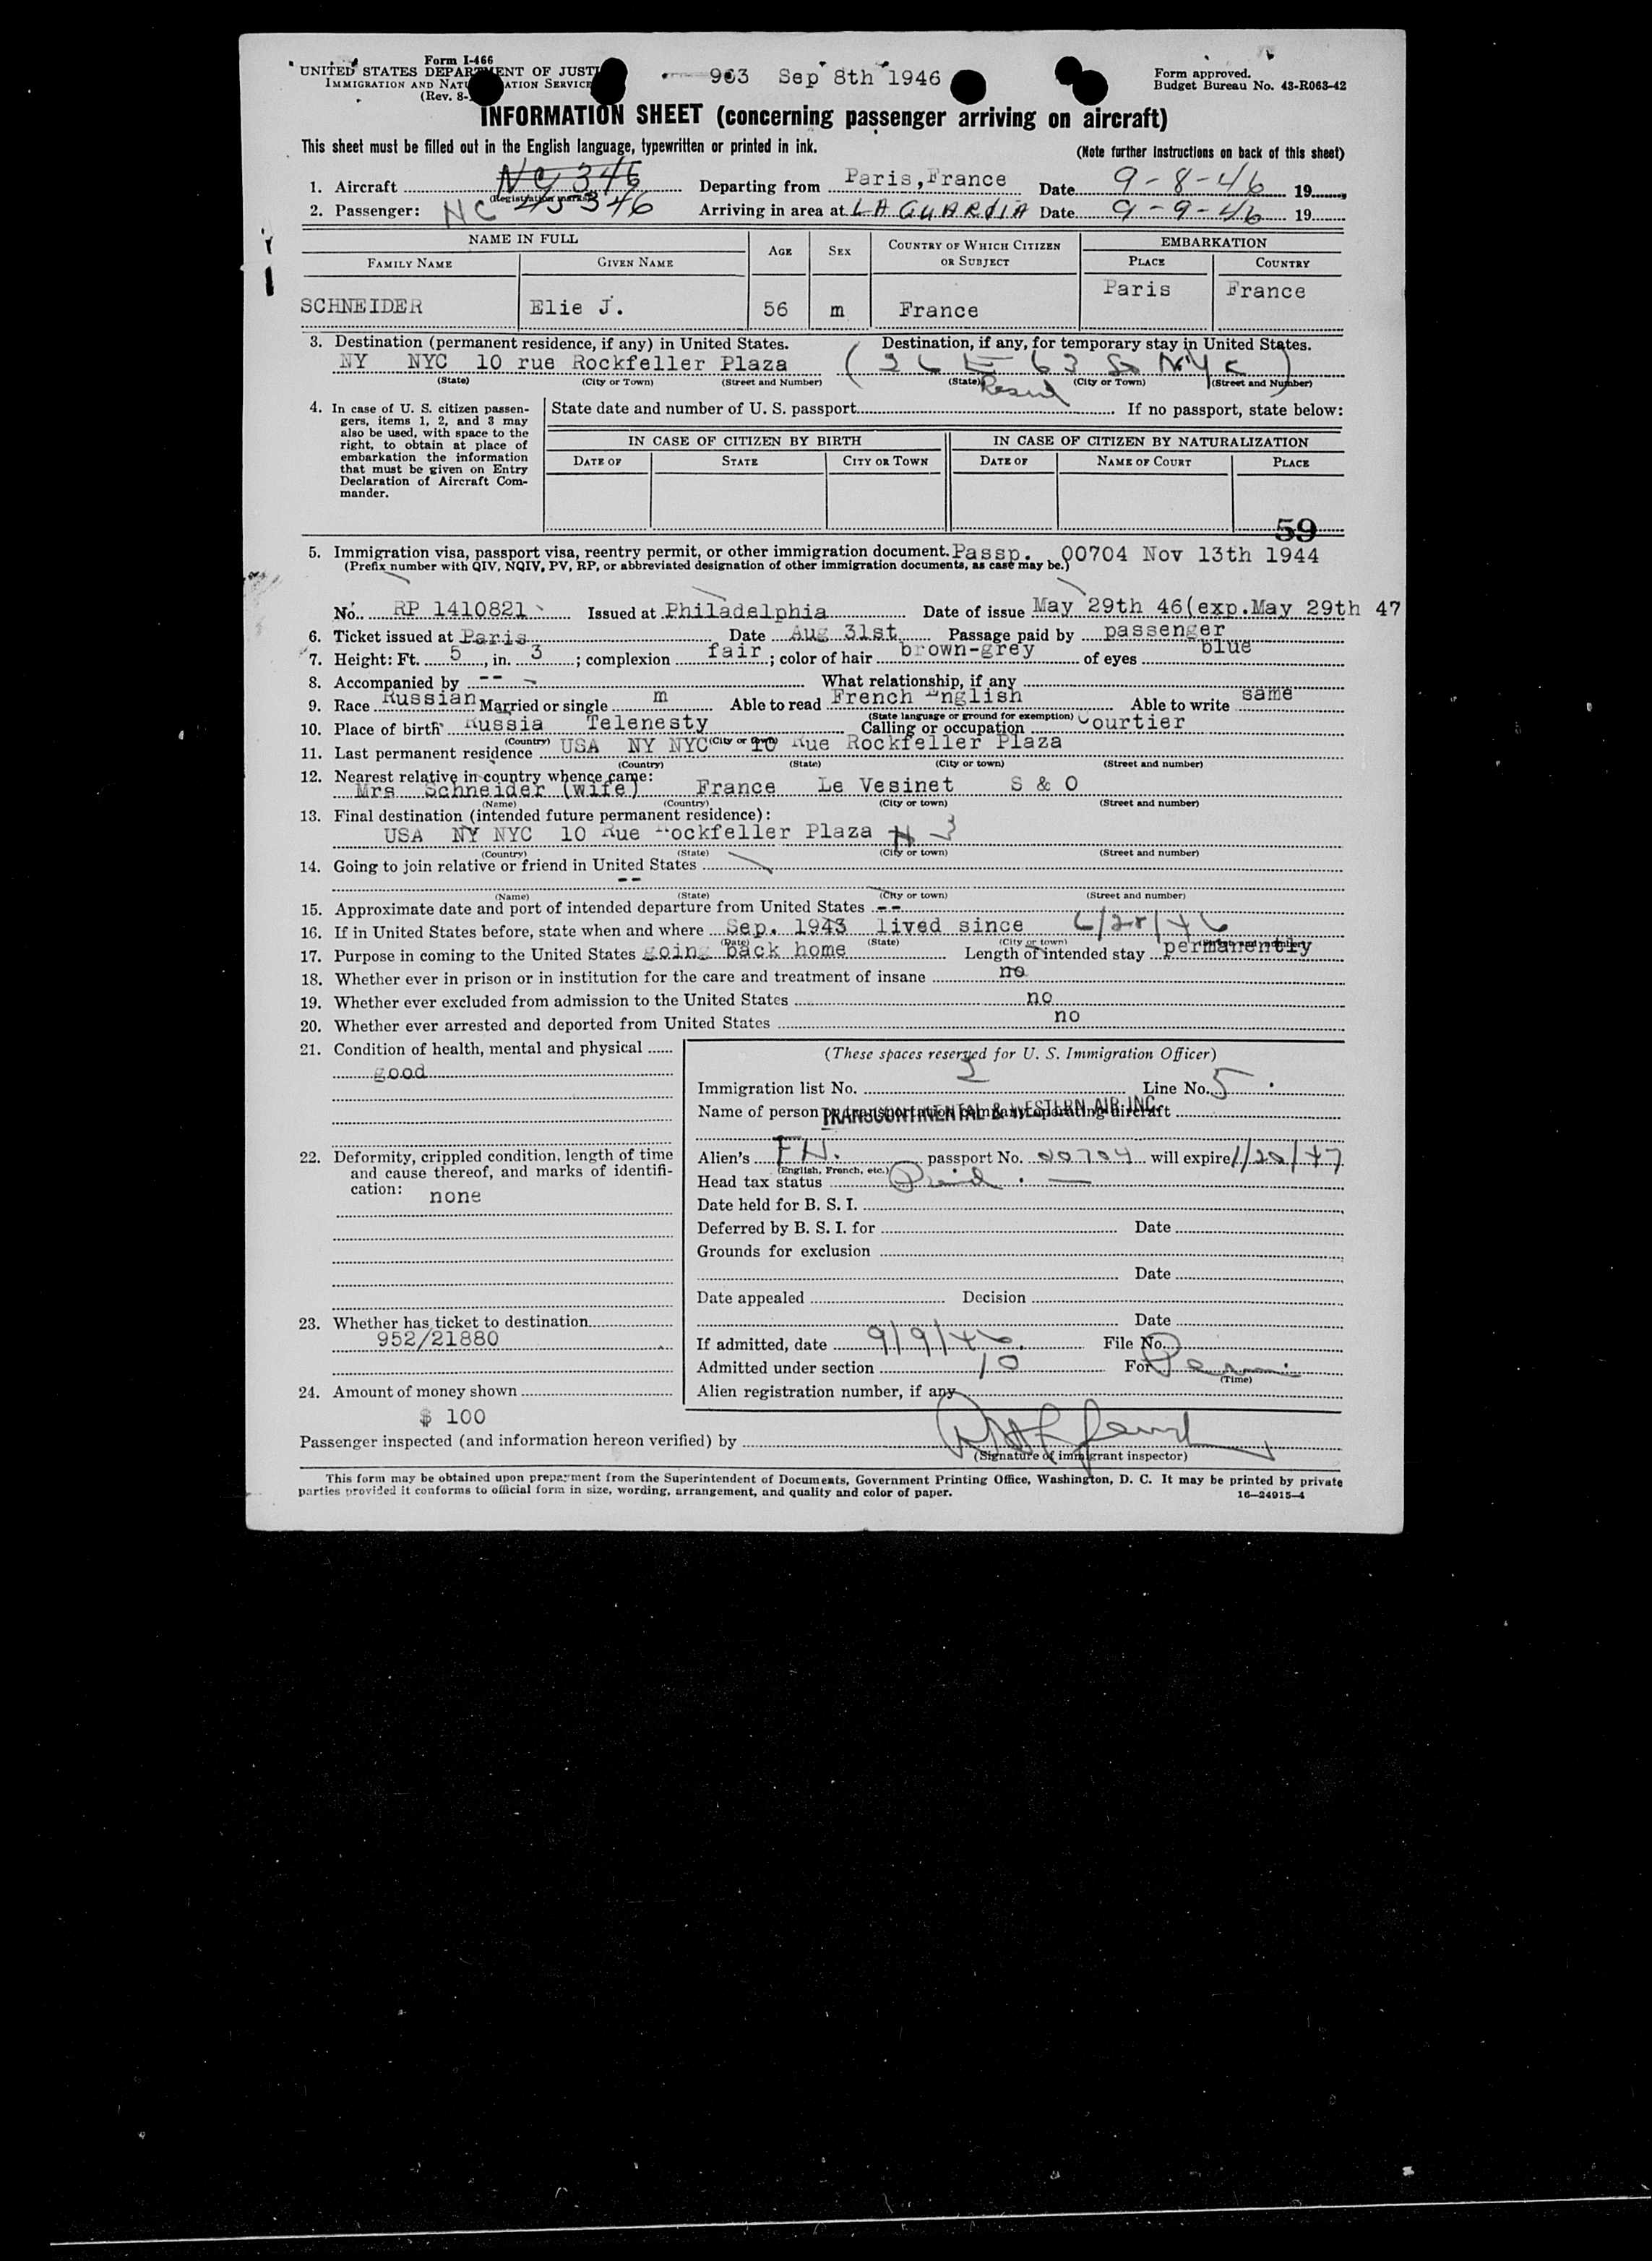 Form I-466
UNITED STATES DEPARTMENT OF JUSTI
IMMIGRATION AND NATU ATION SERVICE
(Rev. 8-
963 Sep 8th 1946
Form approved.
Budget Bureau No. 43-R063-42
INFORMATION SHEET (concerning passenger arriving on aircraft)
This sheet must be filled out in the English language, typewritten or printed in ink.
(Note further instructions on back of this sheet)
1. Aircraft NC 346 Departing from Paris, France Date 9-8-46 19
(Registration marks)
2. Passenger: NC 45346 Arriving in area at LA GUARDIA Date 9-9-46 19
NAME IN FULL AGE SEX COUNTRY OF WHICH CITIZEN OR SUBJECT EMBARKATION
FAMILY NAME GIVEN NAME PLACE COUNTRY
SCHNEIDER Elie J. 56 m France Paris France
3. Destination (permanent residence, if any) in United States. Destination, if any, for temporary stay in United States.
NY NYC 10 rue Rockfeller Plaza (26 E 63 St NYC)
(State) (City or Town) (Street and Number) (State) (City or Town) (Street and Number)
4. In case of U. S. citizen passengers, items 1, 2, and 3 may also be used, with space to the right, to obtain at place of embarkation the information that must be given on Entry Declaration of Aircraft Commander.
State date and number of U. S. passport If no passport, state below:
IN CASE OF CITIZEN BY BIRTH IN CASE OF CITIZEN BY NATURALIZATION
DATE OF STATE CITY OR TOWN DATE OF NAME OF COURT PLACE
59
5. Immigration visa, passport visa, reentry permit, or other immigration document. Passp. 00704 Nov 13th 1944
(Prefix number with QIV, NQIV, PV, RP, or abbreviated designation of other immigration documents, as case may be.)
No. RP 1410821 Issued at Philadelphia Date of issue May 29th 46(exp.May 29th 47
6. Ticket issued at Paris Date Aug 31st Passage paid by passenger
7. Height: Ft. 5, in. 3; complexion fair; color of hair brown-grey of eyes blue
8. Accompanied by -- What relationship, if any
9. Race Russian Married or single m Able to read French English Able to write same
(State language or ground for exemption)
10. Place of birth Russia Telenesty Calling or occupation Courtier
(Country) (City or town)
11. Last permanent residence USA NY NYC 10 Rue Rockfeller Plaza
(Country) (State) (City or town) (Street and number)
12. Nearest relative in country whence came:
Mrs Schneider (wife) France Le Vesinet S & O
(Name) (Country) (City or town) (Street and number)
13. Final destination (intended future permanent residence):
USA NY NYC 10 Rue Rockfeller Plaza
(Country) (State) (City or town) (Street and number)
14. Going to join relative or friend in United States
--
(Name) (State) (City or town) (Street and number)
15. Approximate date and port of intended departure from United States --
16. If in United States before, state when and where Sep. 1943 lived since 6/28/46
(Date) (State) (City or town) (Street and number)
17. Purpose in coming to the United States going back home Length of intended stay permanently
18. Whether ever in prison or in institution for the care and treatment of insane no
19. Whether ever excluded from admission to the United States no
20. Whether ever arrested and deported from United States no
21. Condition of health, mental and physical
good
22. Deformity, crippled condition, length of time and cause thereof, and marks of identification: none
23. Whether has ticket to destination
952/21880
24. Amount of money shown
$ 100
(These spaces reserved for U. S. Immigration Officer)
Immigration list No. Line No. 5
Name of person or transportation company operating aircraft
TRANSCONTINENTAL & WESTERN AIR INC.
Alien's FH. passport No. 00704 will expire 1/20/47
(English, French, etc.)
Head tax status Paid
Date held for B. S. I.
Deferred by B. S. I. for Date
Grounds for exclusion
Date
Date appealed Decision
Date
If admitted, date 9/9/46 File No.
Admitted under section 10 For Perm
(Time)
Alien registration number, if any
Passenger inspected (and information hereon verified) by
(Signature of immigrant inspector)
This form may be obtained upon prepayment from the Superintendent of Documents, Government Printing Office, Washington, D. C. It may be printed by private
parties provided it conforms to official form in size, wording, arrangement, and quality and color of paper.
16—24915-4